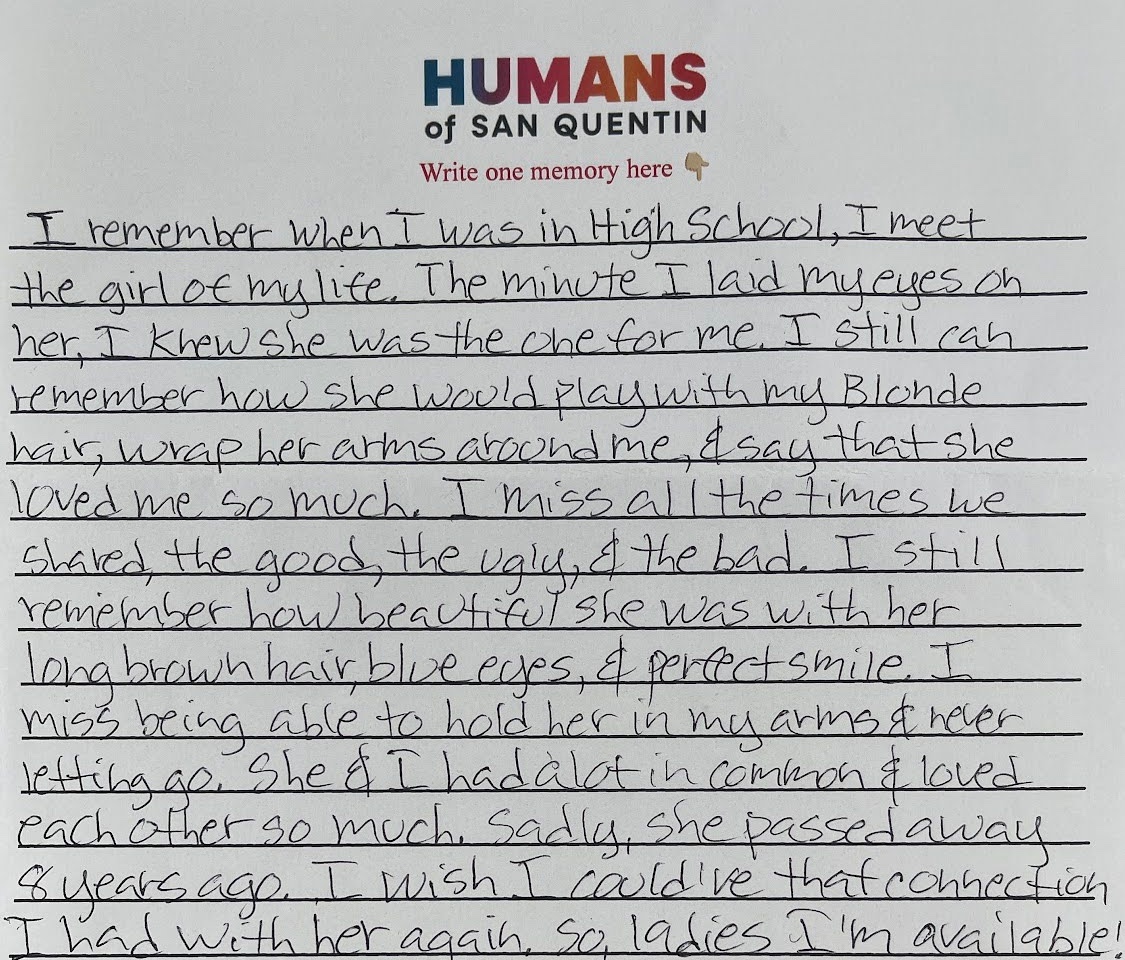 HUMANS
of SAN QUENTIN
Write one memory here 👇🏼
I remember when I was in High School, I meet
the girl of my life. The minute I laid my eyes on
her, I knew she was the one for me. I still can
remember how she would play with my Blonde
hair, wrap her arms around me, & say that she
loved me so much. I miss all the times we
shared, the good, the ugly, & the bad. I still
remember how beautiful she was with her
long brown hair, blue eyes, & perfect smile. I
miss being able to hold her in my arms & never
letting go. She & I had alot in common & loved
each other so much. Sadly, she passed away
8 years ago. I wish I could've that connection
I had with her again. So, ladies I'm available!